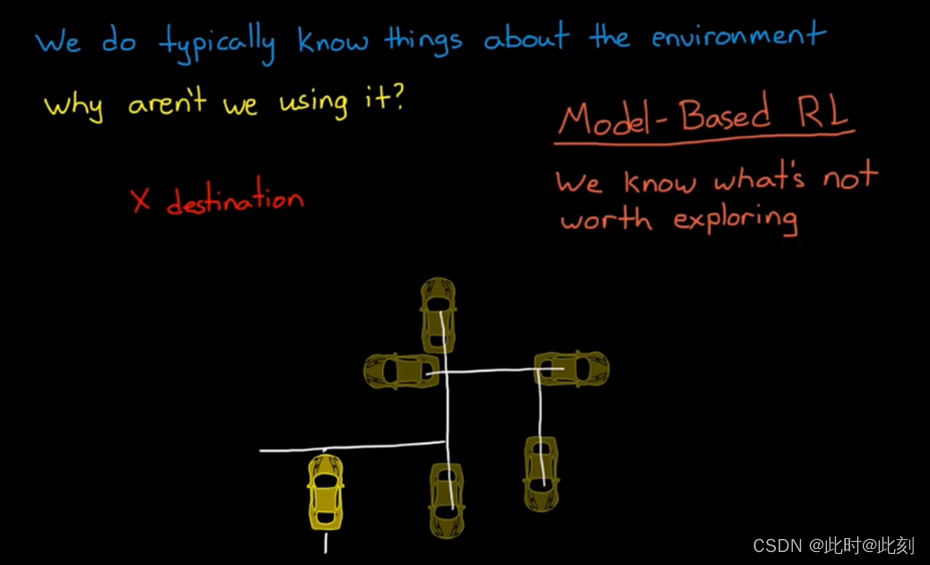 We do typically know things about the environment
why aren't we using it?
Model-Based RL
We know what's not
worth exploring
X destination
CSDN @此时@此刻